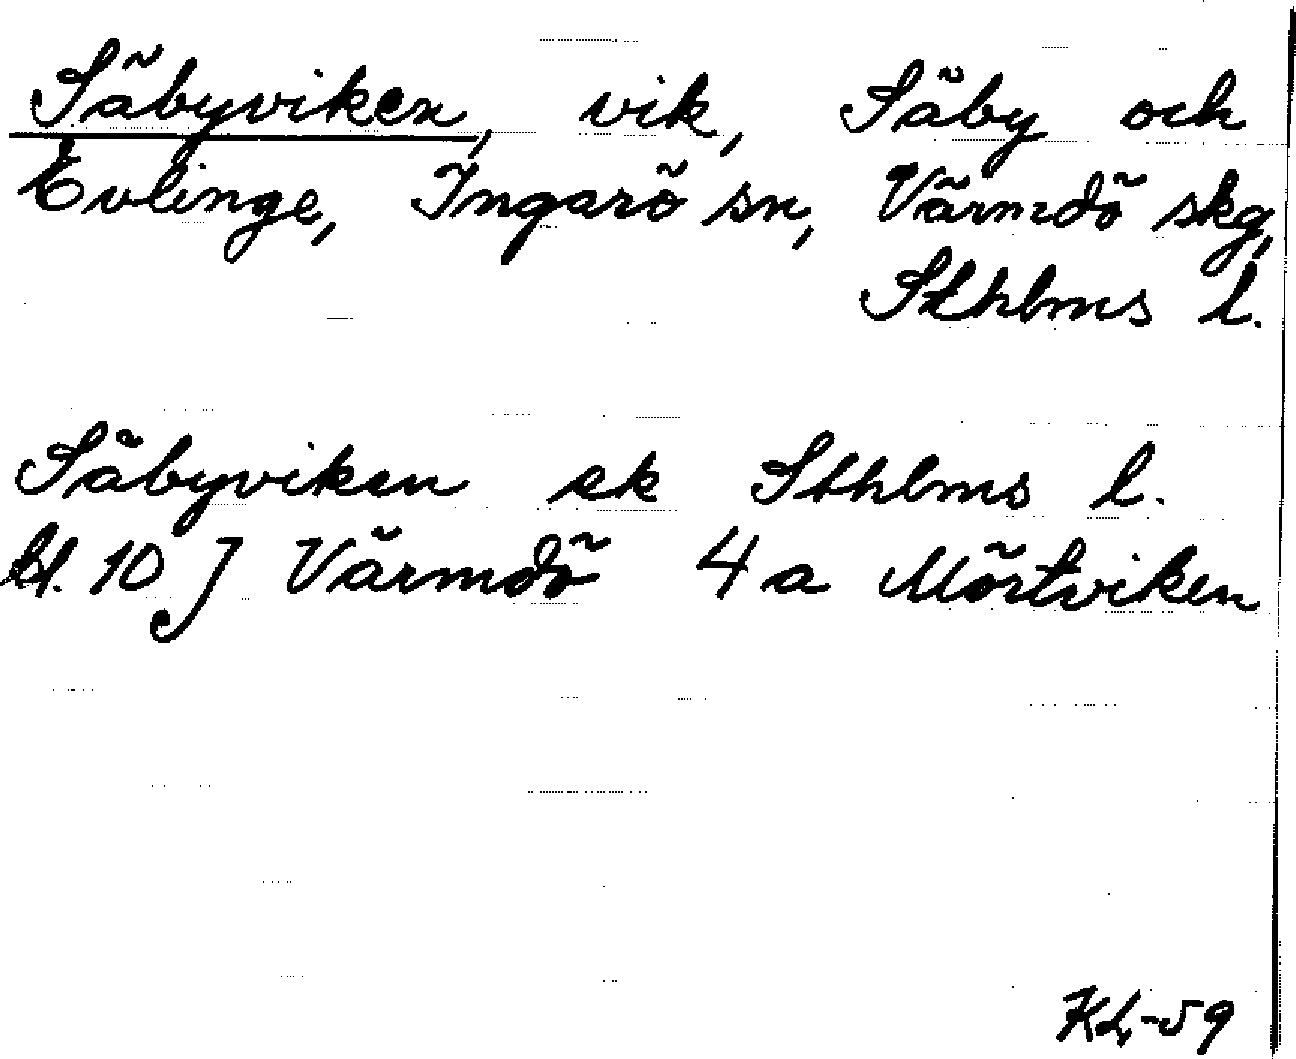 Säbyviken, vik, Säby och
Evlinge, Ingarö sn, Värmdö skg,
Sthlms l.
Säbyviken ek Sthlms l.
bl. 10 J Värmdö 4 a Mörtviken
KL-59